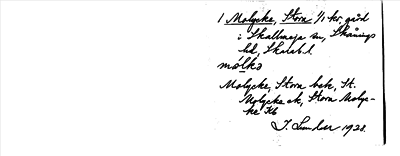 1 Molycke, Stora 1/1 kr. gård
i Skallmeja sn, Skånings
hd, Skarab. l.
mólkə
Molycke, Stora bek, St.
Molycke ek, Stora Molyc-
ke Kb
J. 1928.